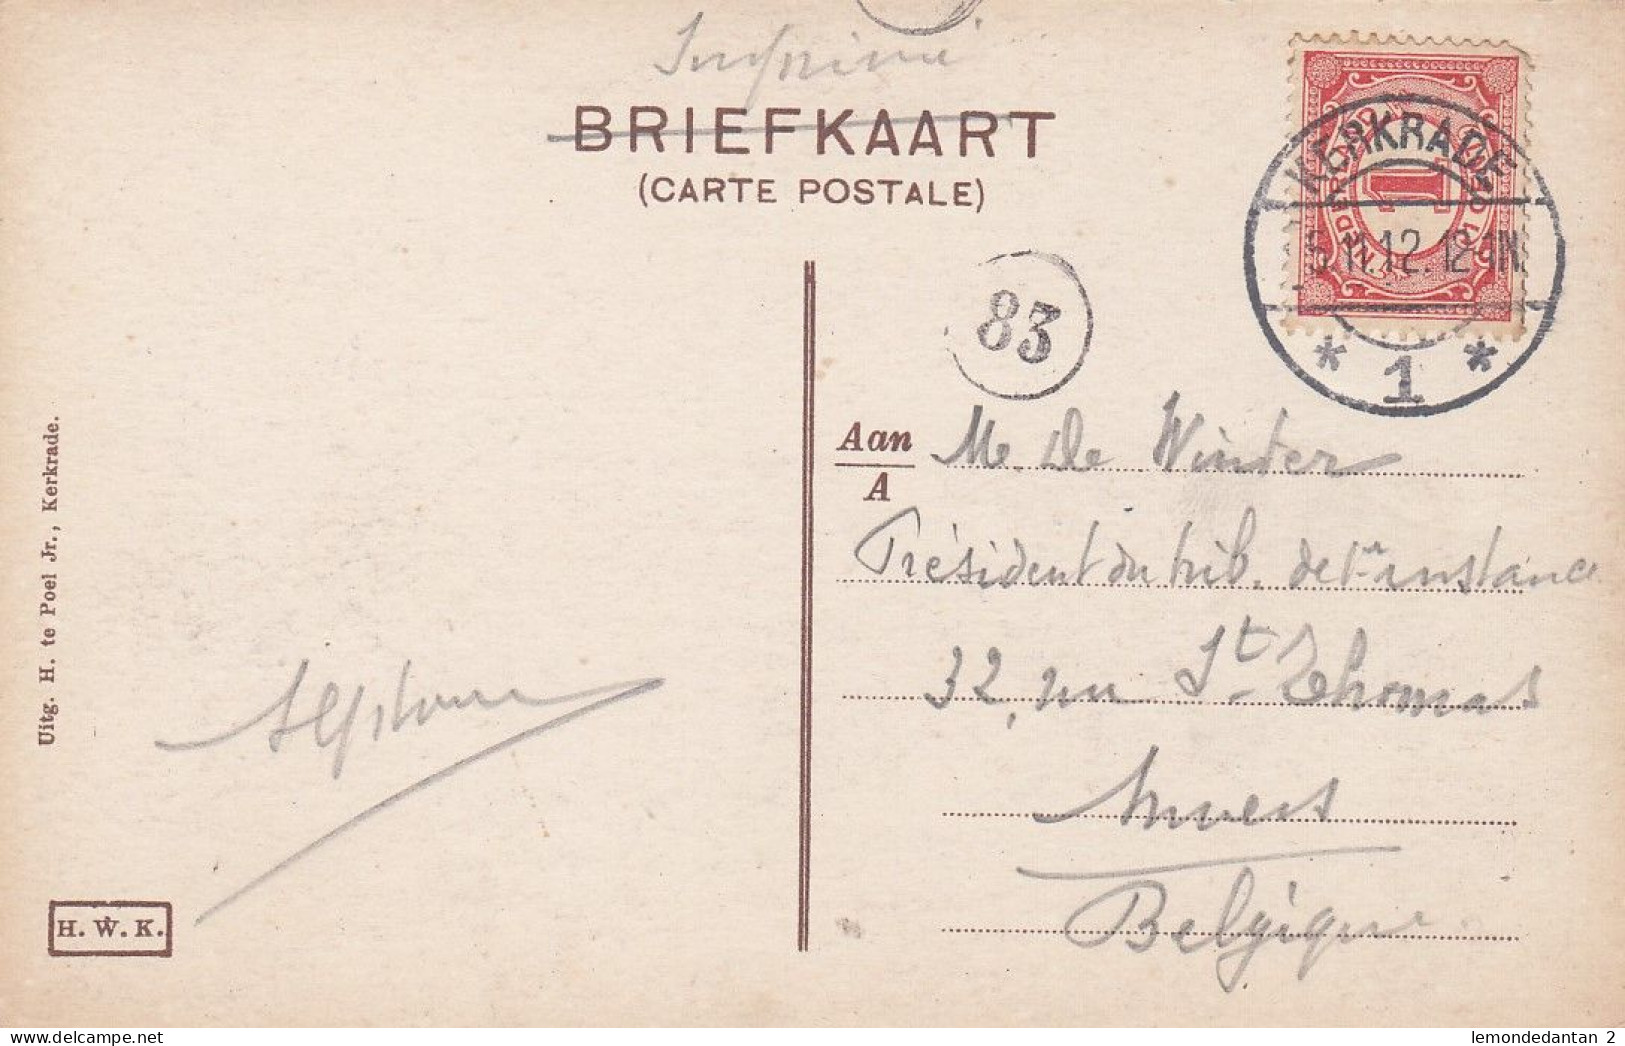 Imprimé
BRIEFKAART
(CARTE POSTALE)
KERKRADE
5.11.12.12-1N
* 1 *
1
83
Aan
A
Mr. De Winter
Président du trib. de 1re instance
32, rue St. Thomas
Anvers
Belgique
Uitg. H. te Poel Jr., Kerkrade.
H. W. K.
delcampe.net
lemondedantan 2